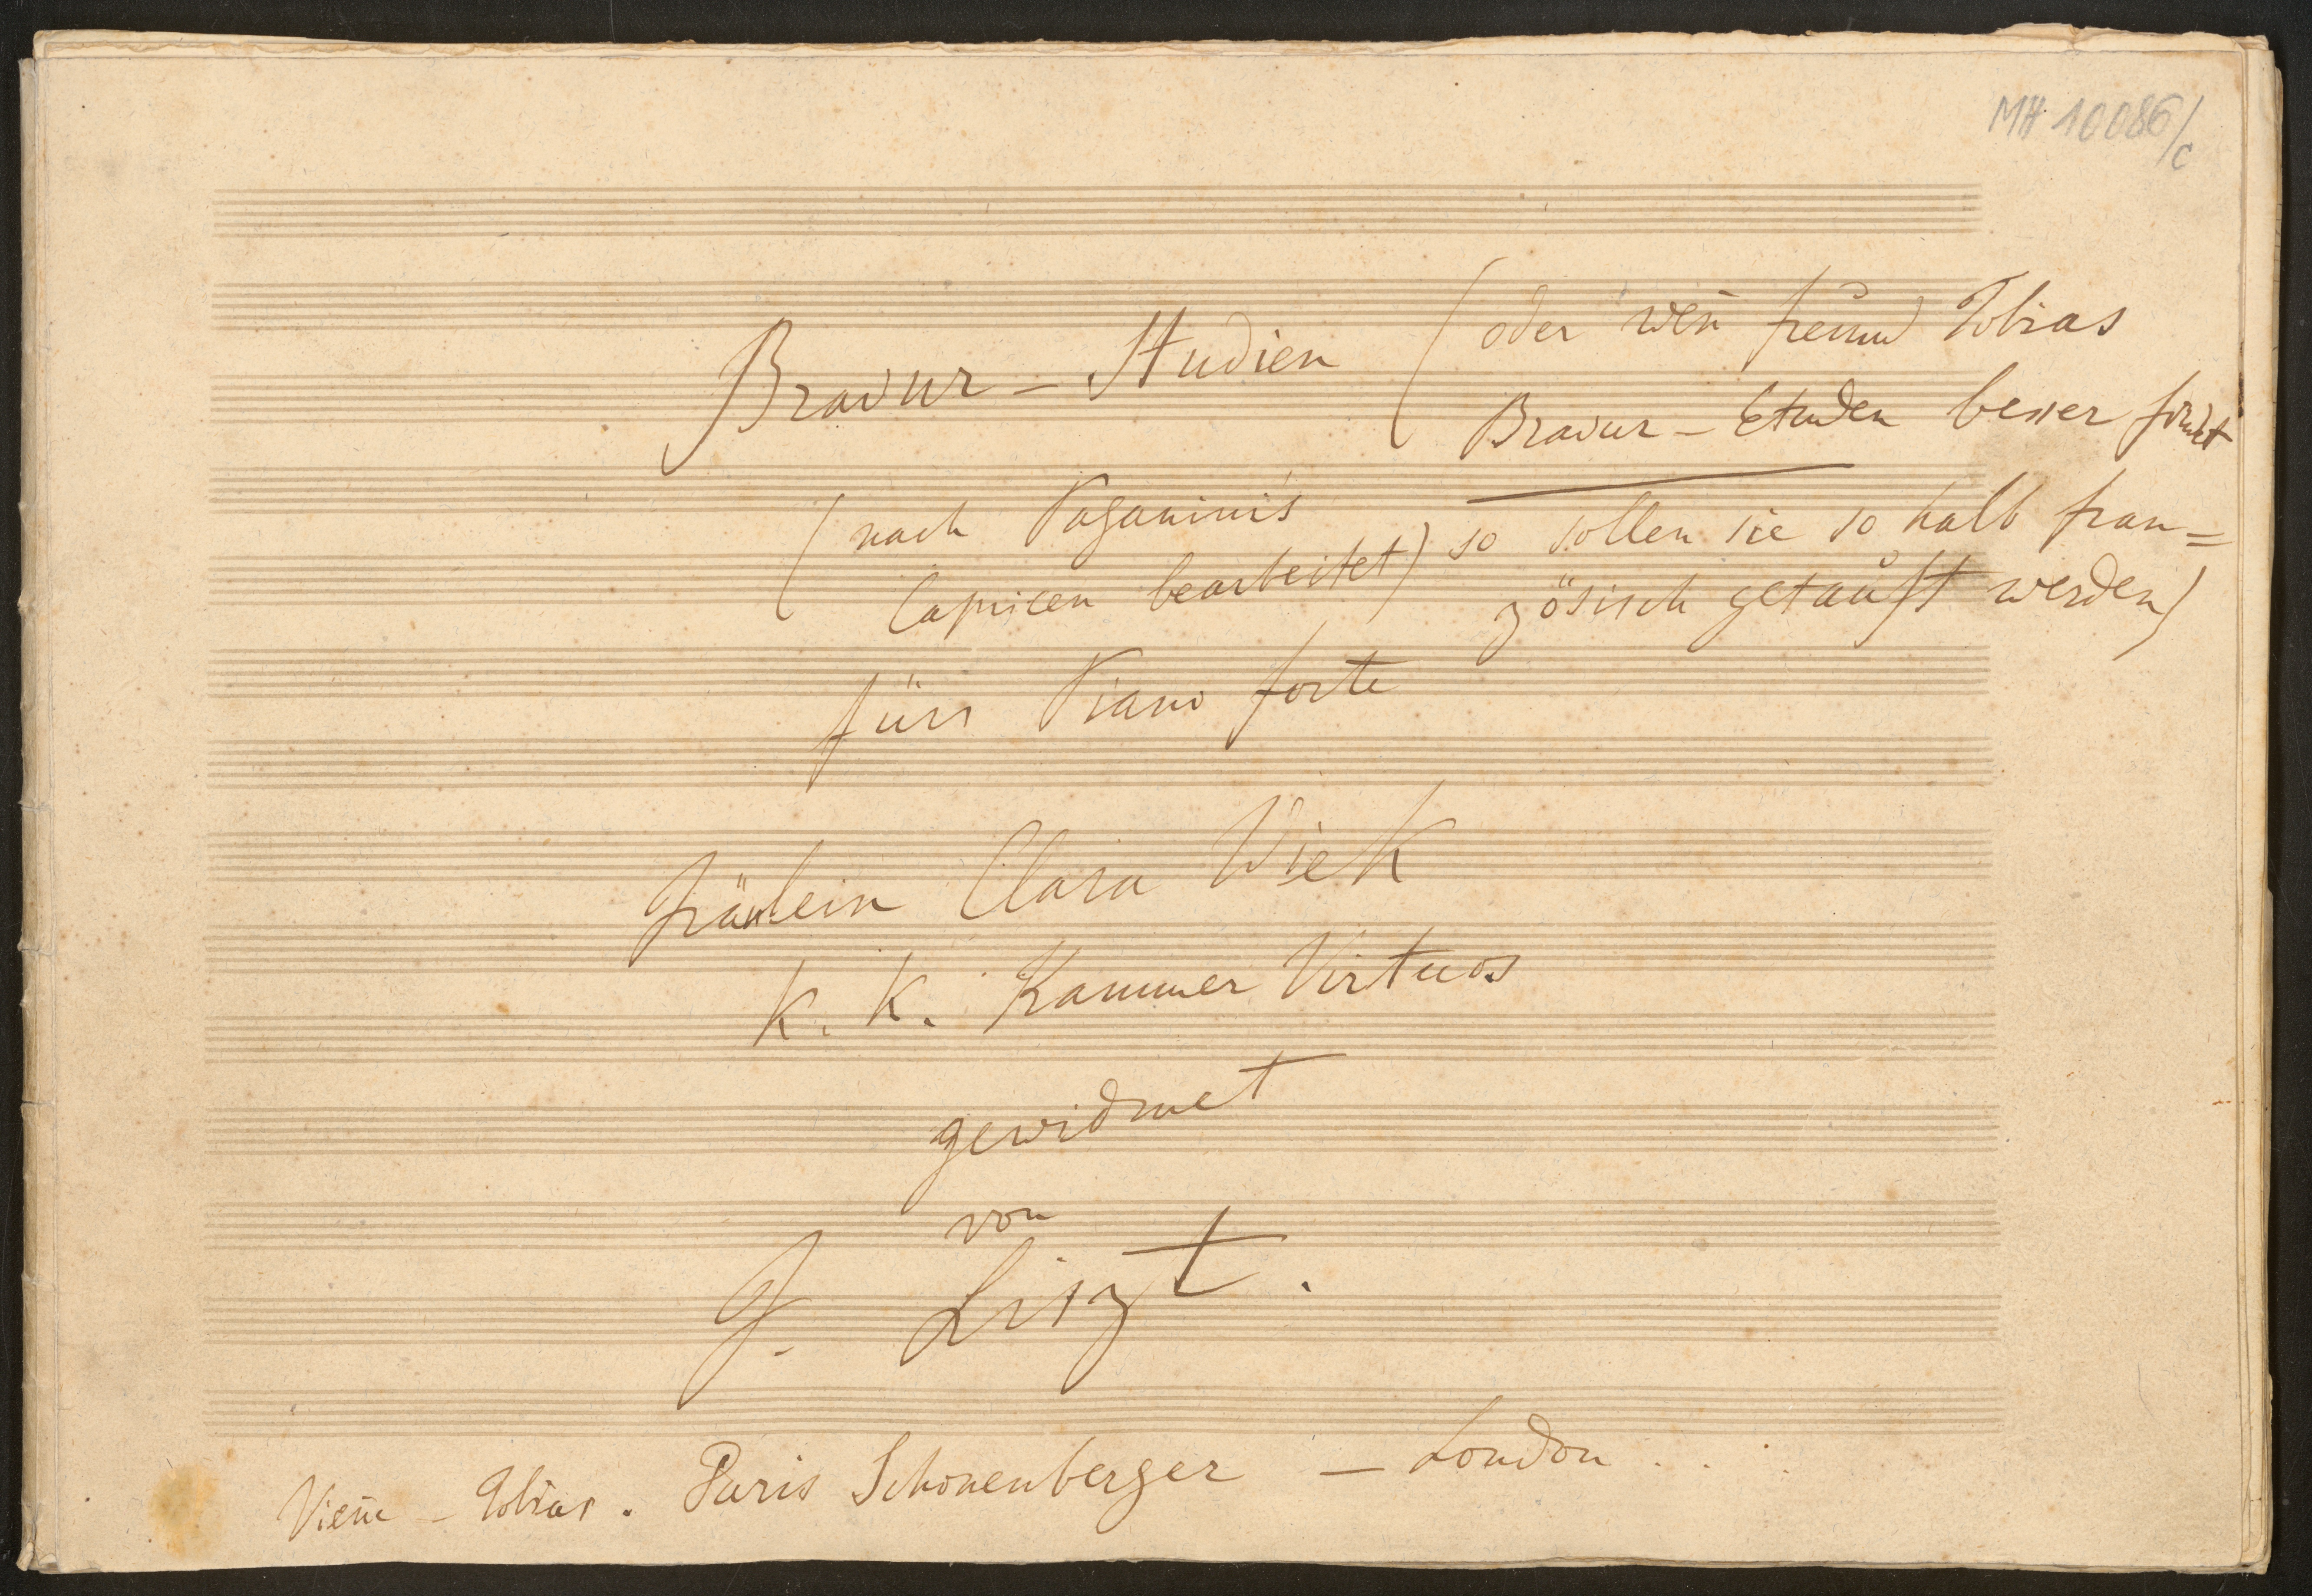 MH 10086/c
Bravur – Studien
(oder weñ freund Tobias
Bravur – Etuden besser findet
so sollen sie so halb fran=
zösisch getauft werden)
(nach Paganinis
Capricen bearbeitet)
fürs Piano forte
Fräulein Clara Wiek
K. K. Kammer Virtuos
gewidmet
von
F. Liszt.
Vieñe – Tobias. Paris Schonenberger – London . . .